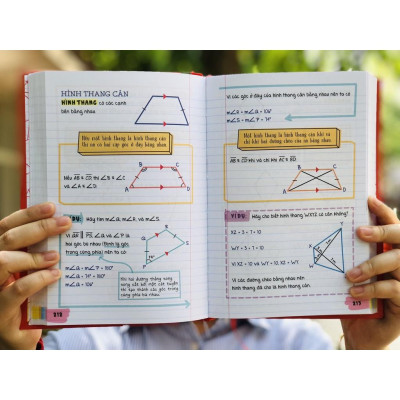 HÌNH THANG CÂN
HÌNH THANG có các cạnh
bên bằng nhau.
Nếu một hình thang là hình thang cân
thì nó có hai cặp góc ở đáy bằng nhau.
Nếu AB ≅ CD thì ∠B ≅ ∠C
và ∠A ≅ ∠D.
B
C
A
D
VÍ DỤ: Hãy tìm m∠Q, m∠R, và m∠S.
Vì QR ∥ PS, ∠Q và ∠P là
hai góc bù nhau (Định lý góc
trong cùng phía) nên ta có:
m∠Q + m∠P = 180°
m∠Q + 74° = 180°
m∠Q = 106°
74°
Khi hai đường thẳng song
song cắt bởi một cát tuyến
thì tạo thành các góc trong
cùng phía bù nhau.
312
Vì các góc ở đáy của hình thang cân bằng nhau nên ta có:
m∠R = m∠Q = 106°
m∠S = m∠P = 74°
Một hình thang là hình thang cân khi và
chỉ khi hai đường chéo của nó bằng nhau.
AB ≅ CD khi và chỉ khi AC ≅ BD.
B
C
A
D
VÍ DỤ: Hãy cho biết hình thang WXYZ có cân không?
XZ = 5 + 7 = 12
WY = 5 + 7 = 12
Vì XZ = 12 và WY = 12, XZ = WY
Vì các đường chéo bằng nhau nên
hình thang đã cho là hình thang cân.
X
Y
W
Z
313